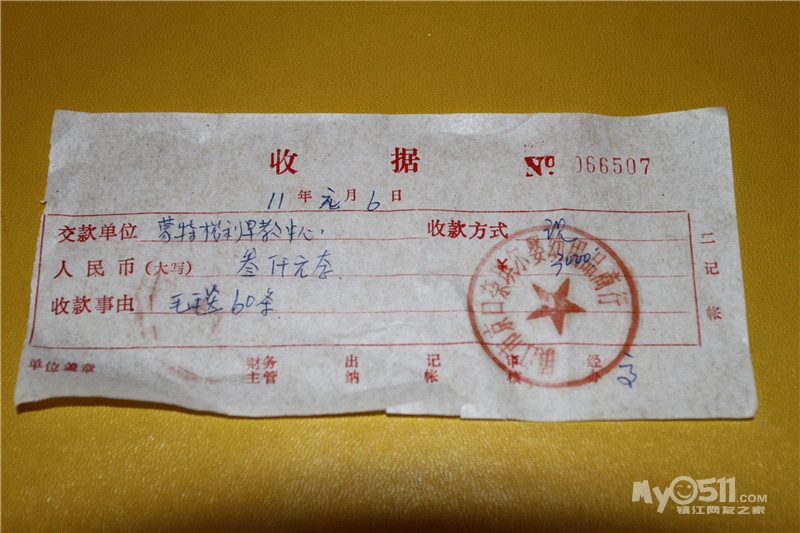 收 据 No 066507
11 年 元 月 6 日
交款单位 蒙特梭利早教中心 收款方式 现
人民币(大写) 叁仟元奎 3000
收款事由 毛毯60条
二记帐
单位盖章 财务主管 出纳 记帐 审核 经办
镇江市京口 婴幼用品商行
My0511.COM
镇江网友之家